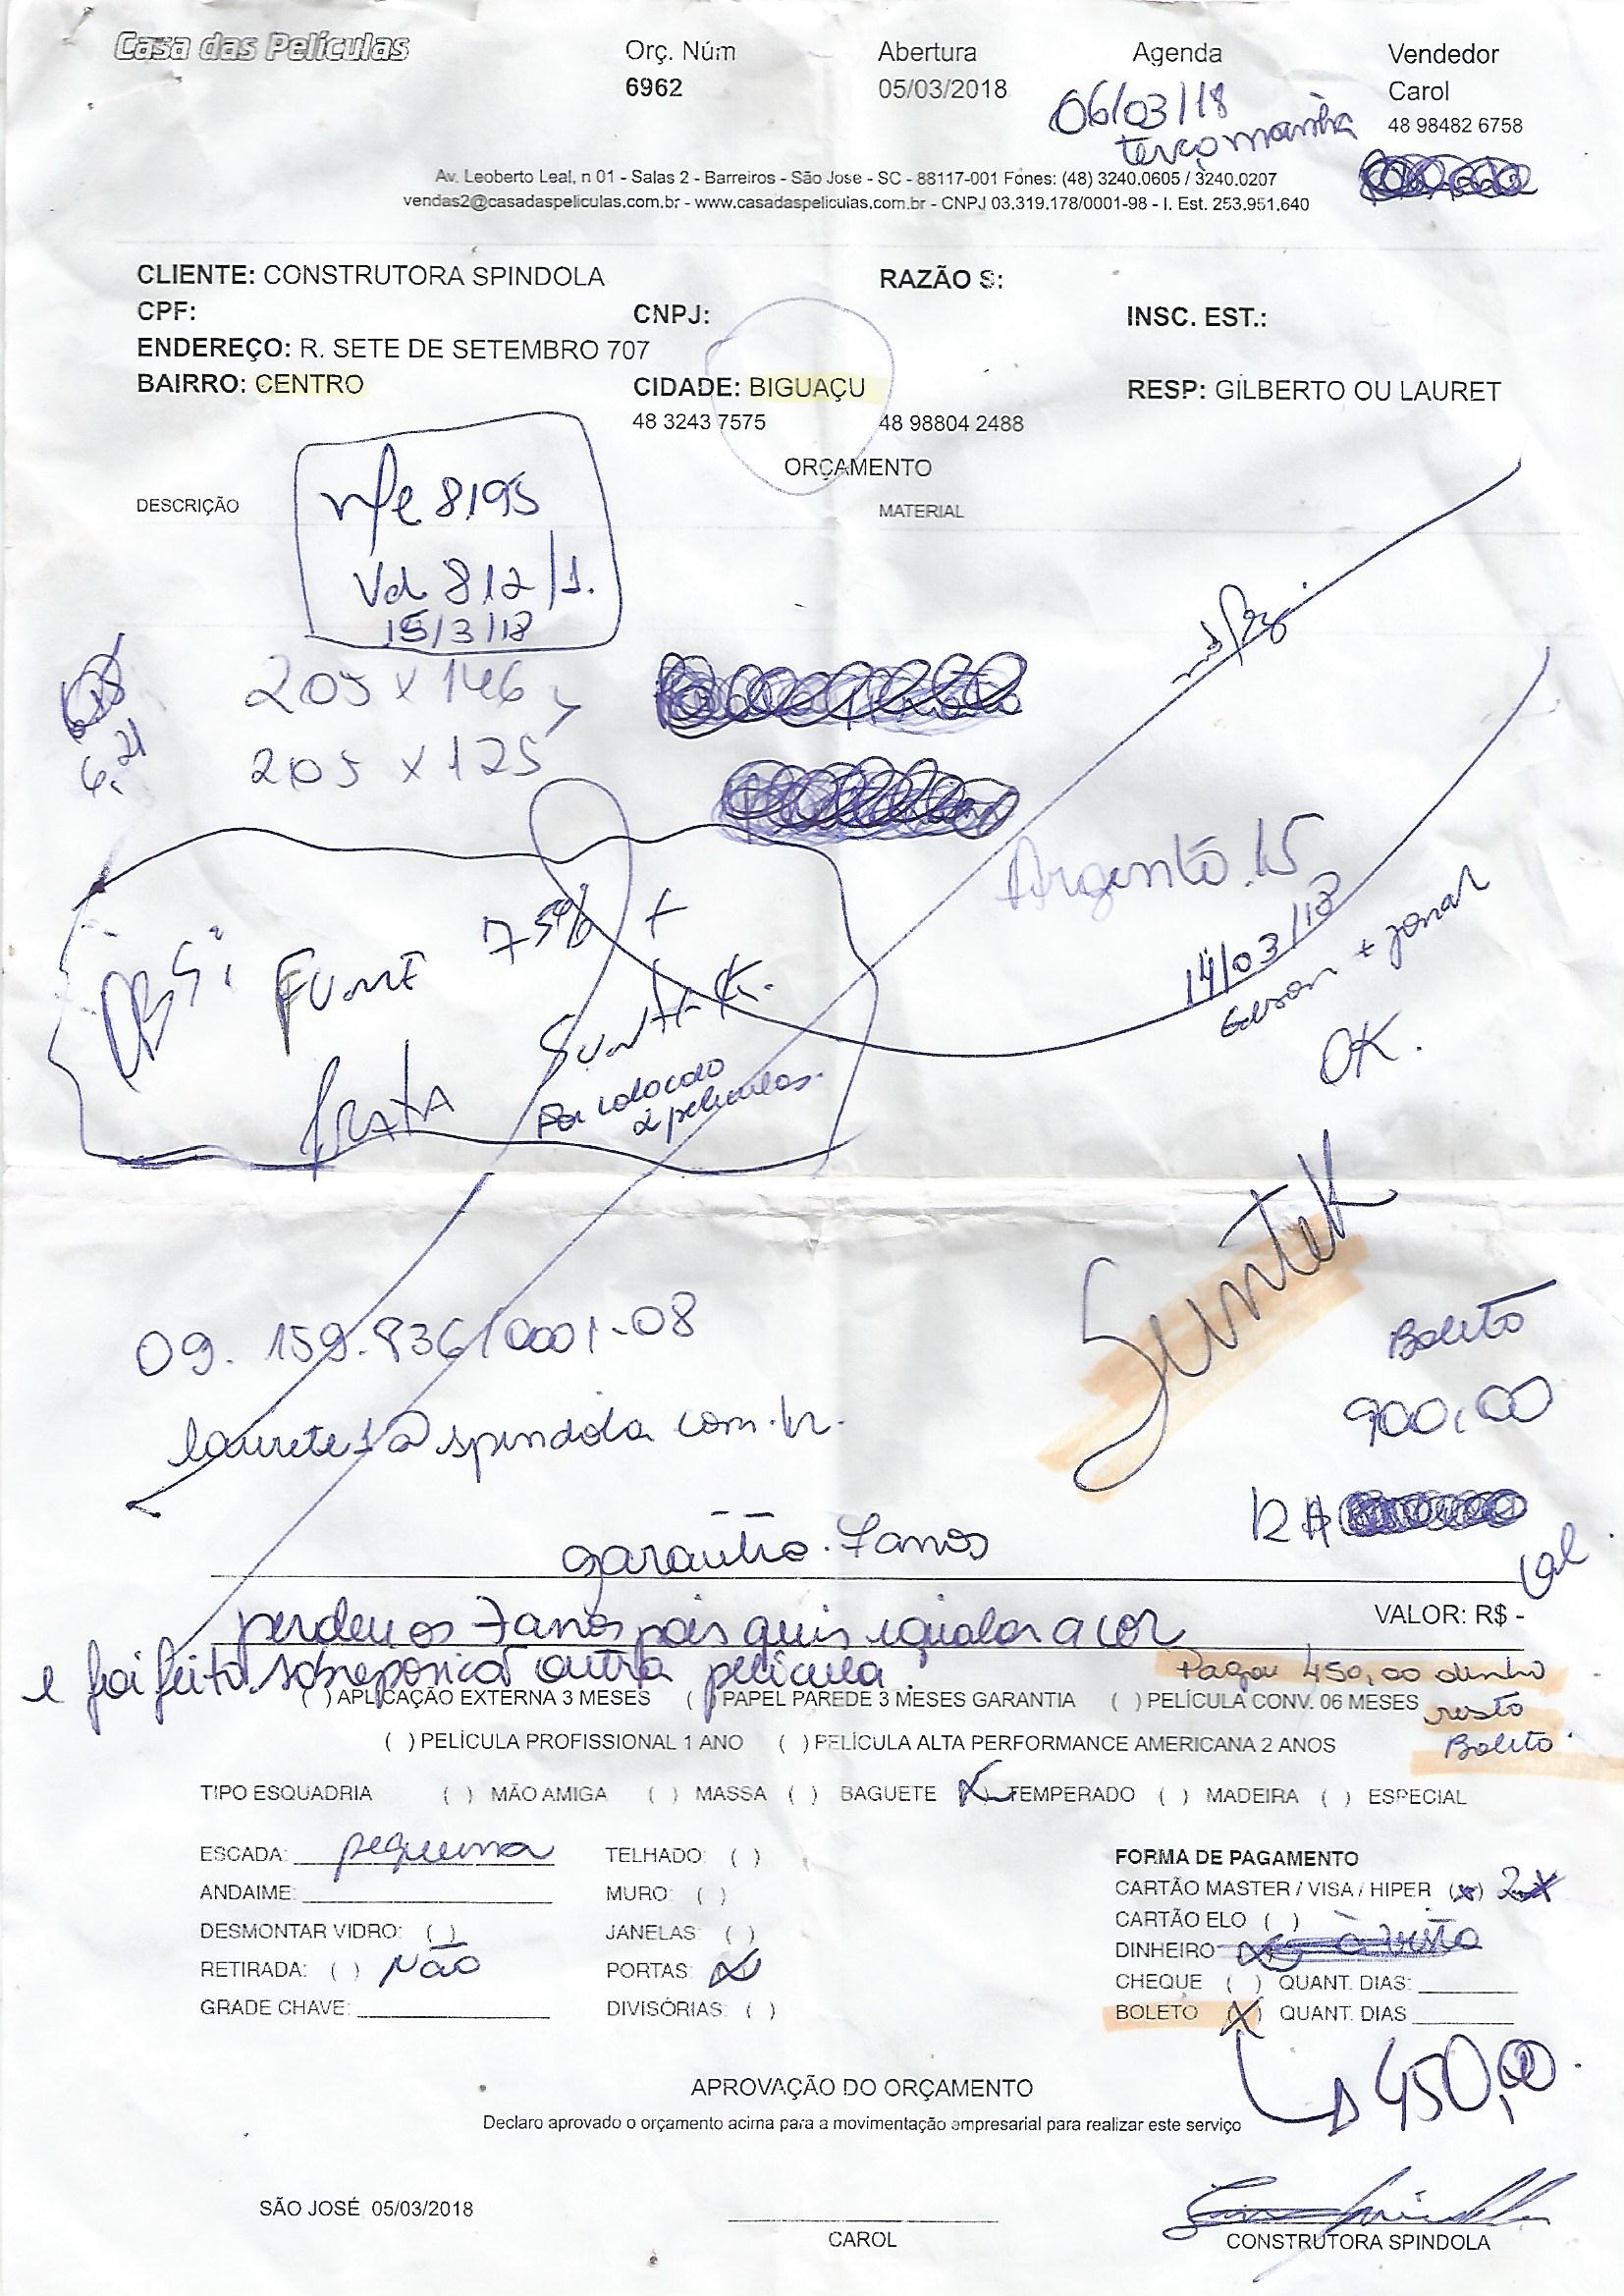 Casa das Películas
Orç. Núm Abertura Agenda Vendedor
6962 05/03/2018 06/03/18 Carol
terça manhã 48 98482 6758
Av. Leoberto Leal, n 01 - Salas 2 - Barreiros - São Jose - SC - 88117-001 Fones: (48) 3240.0605 / 3240.0207
vendas2@casadaspeliculas.com.br - www.casadaspeliculas.com.br - CNPJ 03.319.178/0001-98 - I. Est. 253.951.640
CLIENTE: CONSTRUTORA SPINDOLA RAZÃO S:
CPF: CNPJ: INSC. EST.:
ENDEREÇO: R. SETE DE SETEMBRO 707
BAIRRO: CENTRO CIDADE: BIGUAÇU RESP: GILBERTO OU LAURET
48 3243 7575 48 98804 2488
ORÇAMENTO
DESCRIÇÃO MATERIAL
nfe 8195
Vd 812/1.
15/3/18
205 x 146
205 x 125
Argento 15
OBS: FUME 75% +
PRATA SUNTEK.
Foi colocado
2 películas.
14/03/18
Edson + Jonar
OK.
Suntek
09.159.836/0001-08
laurete1@spindola.com.br.
Boleto
900,00
R$
garantia 7 anos
VALOR: R$ -
perdeu os 7 anos pois quis igualar a cor
e foi feito sobreposicao outra película.
Pagou 450,00 dinho
resto
Boleto.
( ) APLICAÇÃO EXTERNA 3 MESES ( ) PAPEL PAREDE 3 MESES GARANTIA ( ) PELÍCULA CONV. 06 MESES
( ) PELÍCULA PROFISSIONAL 1 ANO ( ) PELÍCULA ALTA PERFORMANCE AMERICANA 2 ANOS
TIPO ESQUADRIA ( ) MÃO AMIGA ( ) MASSA ( ) BAGUETE (X) TEMPERADO ( ) MADEIRA ( ) ESPECIAL
ESCADA: pequena TELHADO: ( ) FORMA DE PAGAMENTO
ANDAIME: MURO: ( ) CARTÃO MASTER / VISA / HIPER (x) 2x
DESMONTAR VIDRO: ( ) JANELAS: ( ) CARTÃO ELO ( )
RETIRADA: ( ) Não PORTAS: (X) DINHEIRO (X) à vista
GRADE CHAVE: DIVISÓRIAS: ( ) CHEQUE ( ) QUANT. DIAS:
BOLETO (X) QUANT. DIAS
450,00
APROVAÇÃO DO ORÇAMENTO
Declaro aprovado o orçamento acima para a movimentação empresarial para realizar este serviço
SÃO JOSÉ 05/03/2018
CAROL CONSTRUTORA SPINDOLA